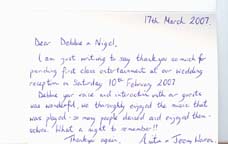 17th March 2007.
Dear Debbie & Nigel,
I am just writing to say thank you so much for
providing first class entertainment at our wedding
reception on Saturday 10th February 2007
Debbie your voice and interaction with our guests
was wonderful, we thoroughly enjoyed the music that
was played - so many people danced and enjoyed them-
selves. What a night to remember!!
Thankyou again,